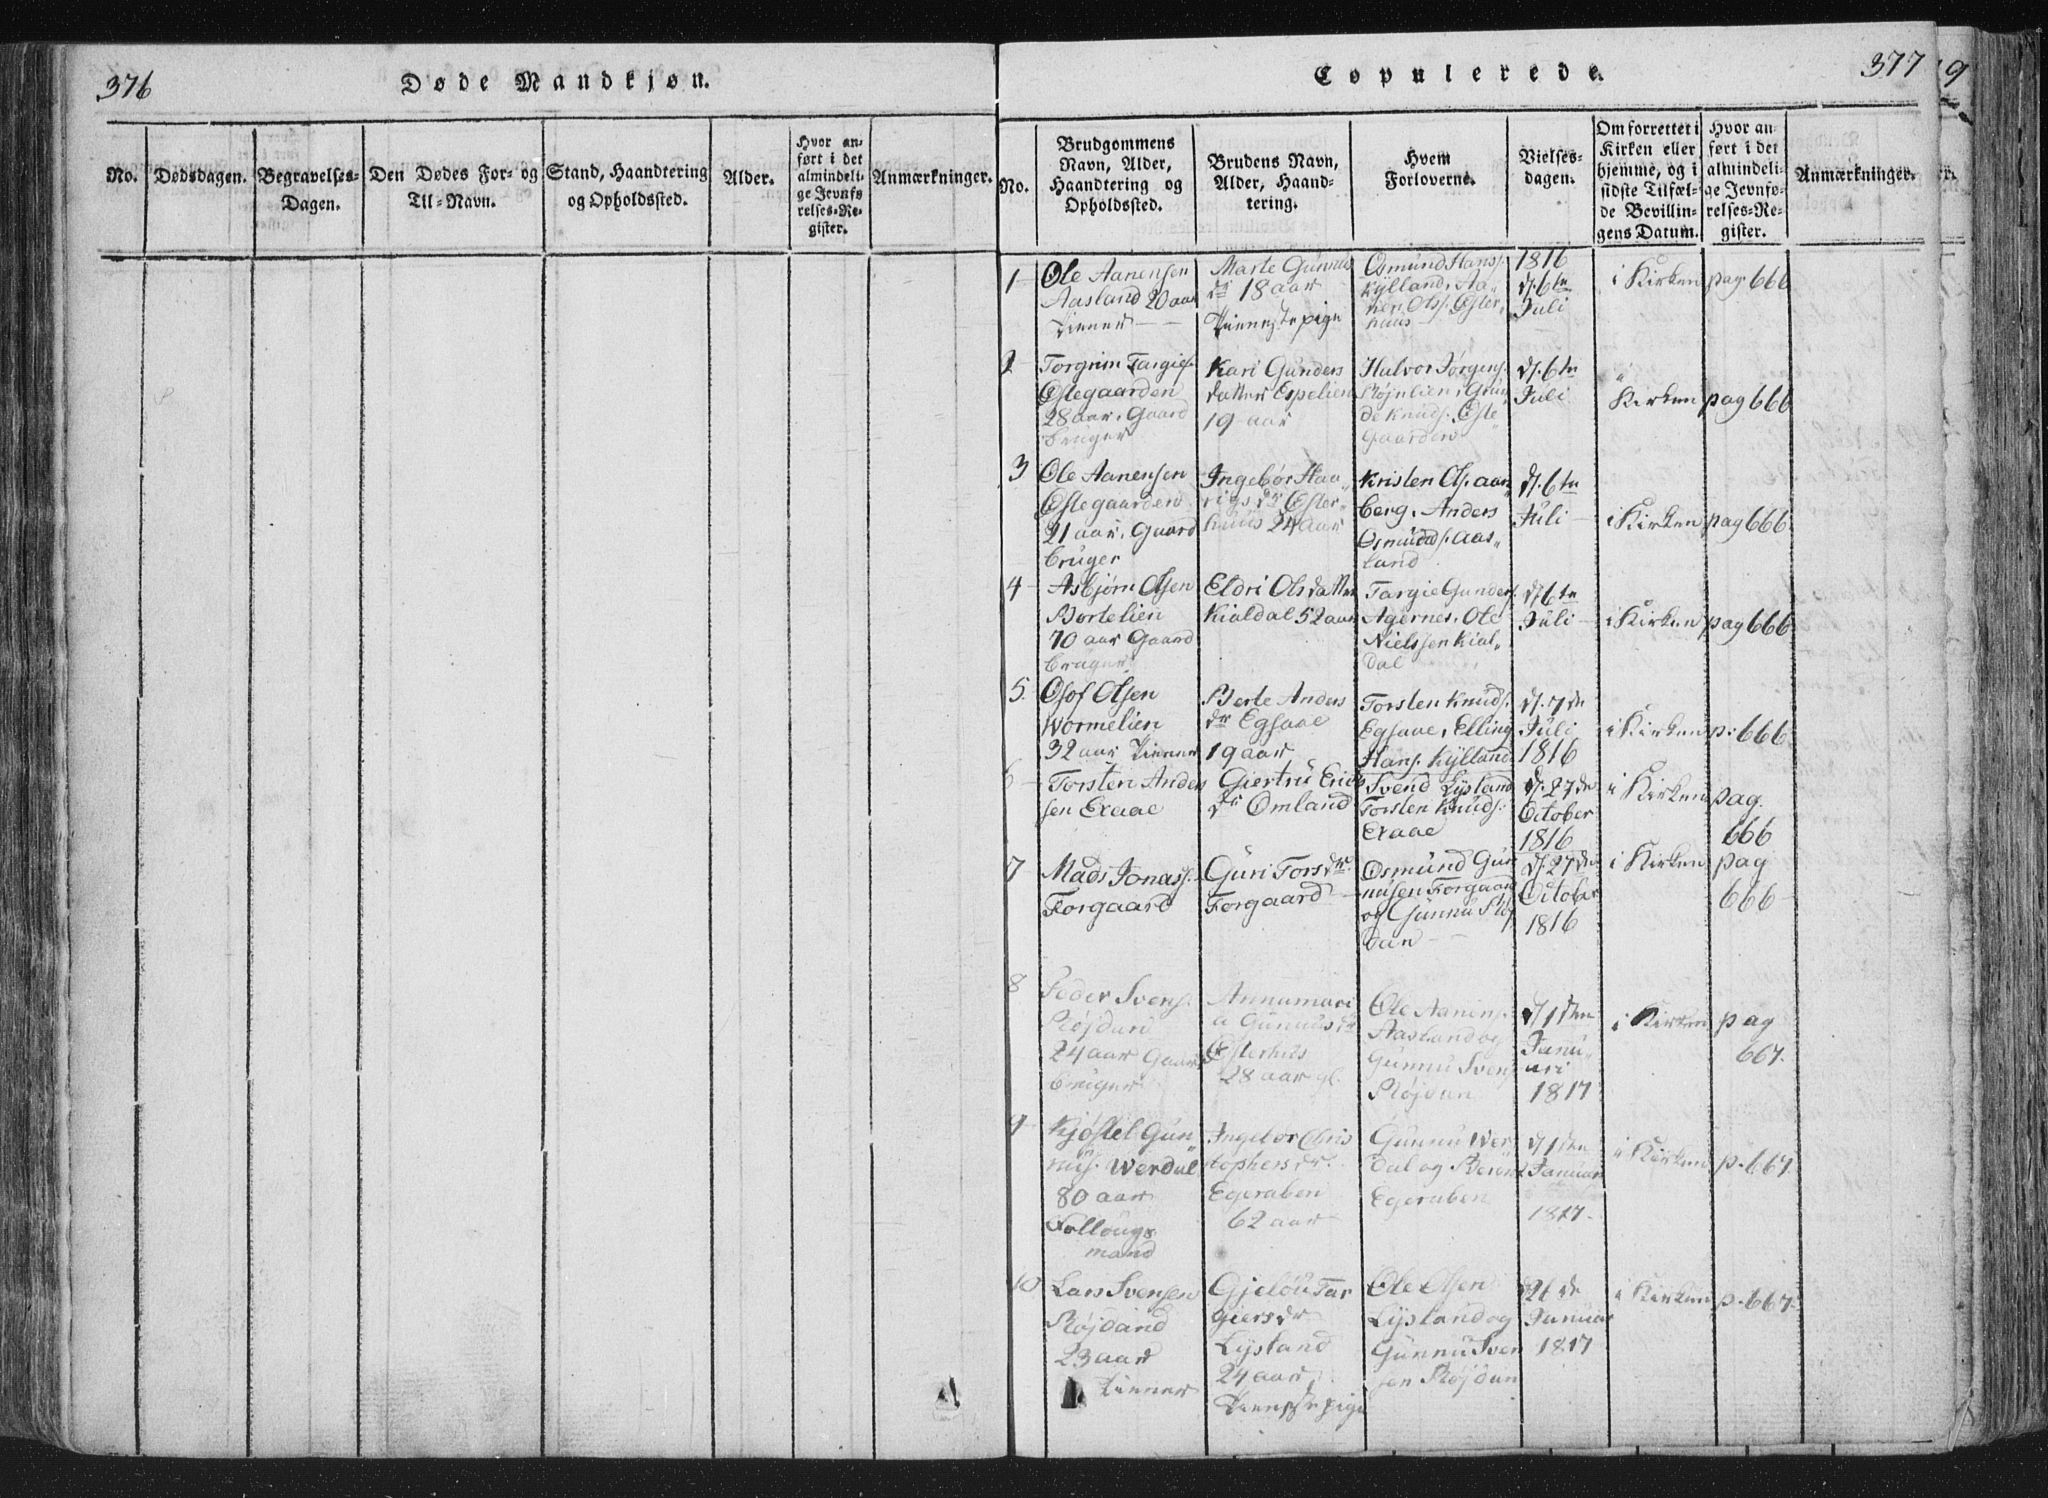 376
Døde Mandkjøn.
No.
Dødsdagen.
Begravelses-
Dagen.
Den Dødes For- og
Til-Navn.
Stand, Haandtering
og Opholdssted.
Alder.
Hvor an-
ført i det
almindeli-
ge Jevnfø
relses-Re-
gister.
Anmærkninger.
Copulerede.
377
9
No.
Brudgommens
Navn, Alder,
Haandtering og
Opholdssted.
Brudens Navn,
Alder, Haand-
tering.
Hvem
Forloverne.
Vielses-
dagen.
Om forrettet i
Kirken eller
hjemme, og i
sidste Tilfæl-
de Bevillin-
gens Datum.
Hvor an-
ført i det
almindeli-
ge Jevnfø-
relses-Re-
gister.
Anmærkninger.
1
Ole Aanensen
Aasland 20 aar
Tiener
Marte Gunnus
dr 18 aar
Tieneste pige
Osmund Hans.
Kylland, Aa-
nen Ols. Ester-
huus
1816
d. 6te
Juli
i Kirken
pag. 666
2
Torgrim Targies.
Østegaarden
28 aar, Gaard
bruger
Kari Gunders
datter Espelien
19 aar
Halvor Jørgens.
Røjnlien, Gun
de Knuds. Øste
Gaarden
d. 6te
Juli
i
Kirken
pag 666
3
Ole Aanensen
Østegaarden
21 aar, Gaard
bruger
Ingebør Haa
vigs dr Ester-
huus 24 aar
Kristen Ols. aas
berg, Anders
Osmunds. Aas-
land
d. 6te
Juli
i Kirken
pag 666
4
Asbjørn Olsen
Bortelien
70 aar Gaard
bruger
Eldri Olsdatter
Kialdal 52 aar
Targie Gunders.
Agernes, Ole
Nielssen Kial-
dal
d. 6te
Juli
i Kirken
pag 666
5
Osof Olsen
Wormelien
32 aar Tiener
Berte Anders
dr Egsaae
19 aar
Torsten Knuds.
Egsaae, Elling
Hans. Kylland
d. 7de
Juli
1816
i Kirken
p: 666
6
Torsten Anders
sen Exaae
Giertru Erics
dr Omland
Svend Lysland
Torsten Knuds.
Exaae
d. 27de
October
1816
i Kirken
pag.
666
7
Mads Jonass.
Forgaard
Guri Torsdr
Forgaard
Osmund Gun
nusen Forgaard
og Gunnu Røj
dan
d. 27de
October
1816
i Kirken
pag
666
8
Peder Svens.
Røjdan
24 aar Gaard
bruger
Annamari
a Gunnus dr
Esterhus
28 aar gl.
Ole Aanens.
Aasland og
Gunnu Svens
Røjdan
d. 1ste
Janu-
ari
1817
i Kirken
pag
667.
9
Kjøstel Gun-
nus. Werdal
80 aar
Follougs
mand
Ingebor Chris
tophersdr.
Egeraben
62 aar
Gunnu Wer
dal og
Egeraben
d. 1ste
Januar
1817
i Kirken
p. 667.
10
Lars Svensen
Røjdand
23 aar
Tiener
Gjeløu Tar
giersdr
Lysland
24 aar,
Tieneste pige
Ole Olsen
Lysland og
Gunnu Sven
sen Røjdan
d 26de
Januar
1817
i Kirken
p. 667